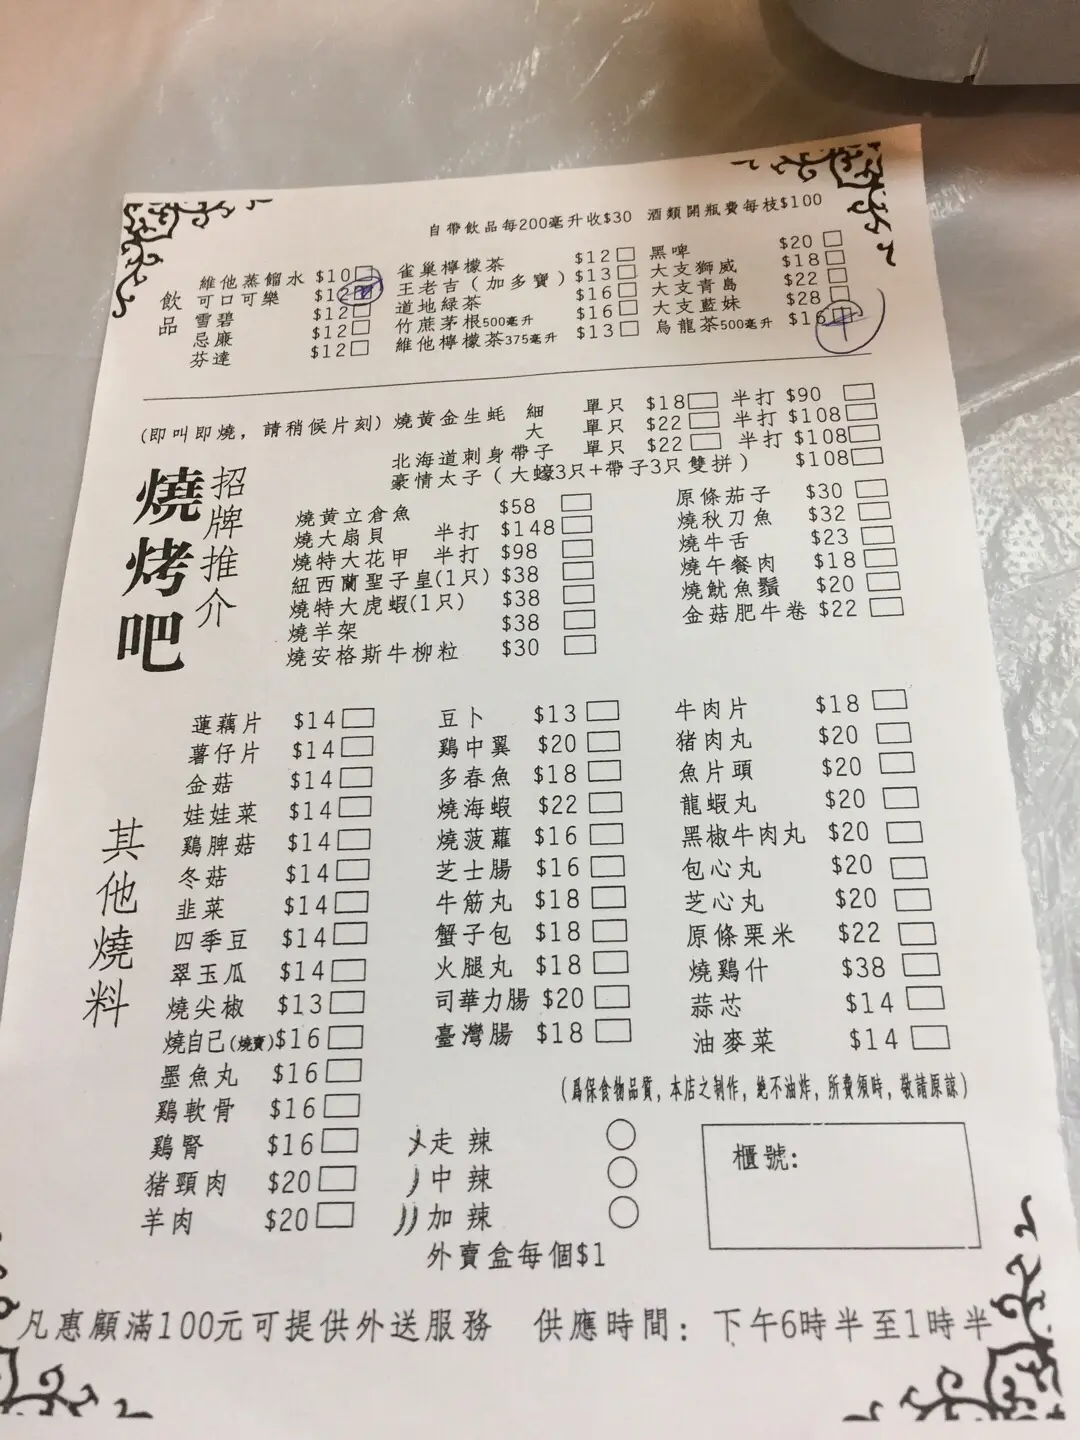 自帶飲品每200毫升收$30 酒類開瓶費每枝$100
飲品
維他蒸餾水 $10
可口可樂 $12
雪碧 $12
忌廉 $12
芬達 $12
雀巢檸檬茶 $12
王老吉（加多寶） $13
道地綠茶 $16
竹蔗茅根500毫升 $16
維他檸檬茶375毫升 $13
黑啤 $20
大支獅威 $18
大支青島 $22
大支藍妹 $28
烏龍茶500毫升 $16
(即叫即燒，請稍候片刻) 燒黃金生蚝 細 單只 $18 半打 $90
大 單只 $22 半打 $108
北海道刺身帶子 單只 $22 半打 $108
豪情太子（大蠔3只+帶子3只雙拼） $108
燒烤吧
招牌推介
燒黃立倉魚 $58
燒大扇貝 半打 $148
燒特大花甲 半打 $98
紐西蘭聖子皇(1只) $38
燒特大虎蝦(1只) $38
燒羊架 $38
燒安格斯牛柳粒 $30
原條茄子 $30
燒秋刀魚 $32
燒牛舌 $23
燒午餐肉 $18
燒魷魚鬚 $20
金菇肥牛卷 $22
其他燒料
蓮藕片 $14
薯仔片 $14
金菇 $14
娃娃菜 $14
鷄脾菇 $14
冬菇 $14
韭菜 $14
四季豆 $14
翠玉瓜 $14
燒尖椒 $13
燒自己(燒賣) $16
墨魚丸 $16
鷄軟骨 $16
鷄腎 $16
猪頸肉 $20
羊肉 $20
豆卜 $13
鷄中翼 $20
多春魚 $18
燒海蝦 $22
燒菠蘿 $16
芝士腸 $16
牛筋丸 $18
蟹子包 $18
火腿丸 $18
司華力腸 $20
臺灣腸 $18
牛肉片 $18
猪肉丸 $20
魚片頭 $20
龍蝦丸 $20
黑椒牛肉丸 $20
包心丸 $20
芝心丸 $20
原條栗米 $22
燒鷄什 $38
蒜芯 $14
油麥菜 $14
(爲保食物品質，本店之制作，絶不油炸，所費須時，敬請原諒)
走辣
中辣
加辣
櫃號:
外賣盒每個$1
凡惠顧滿100元可提供外送服務 供應時間: 下午6時半至1時半